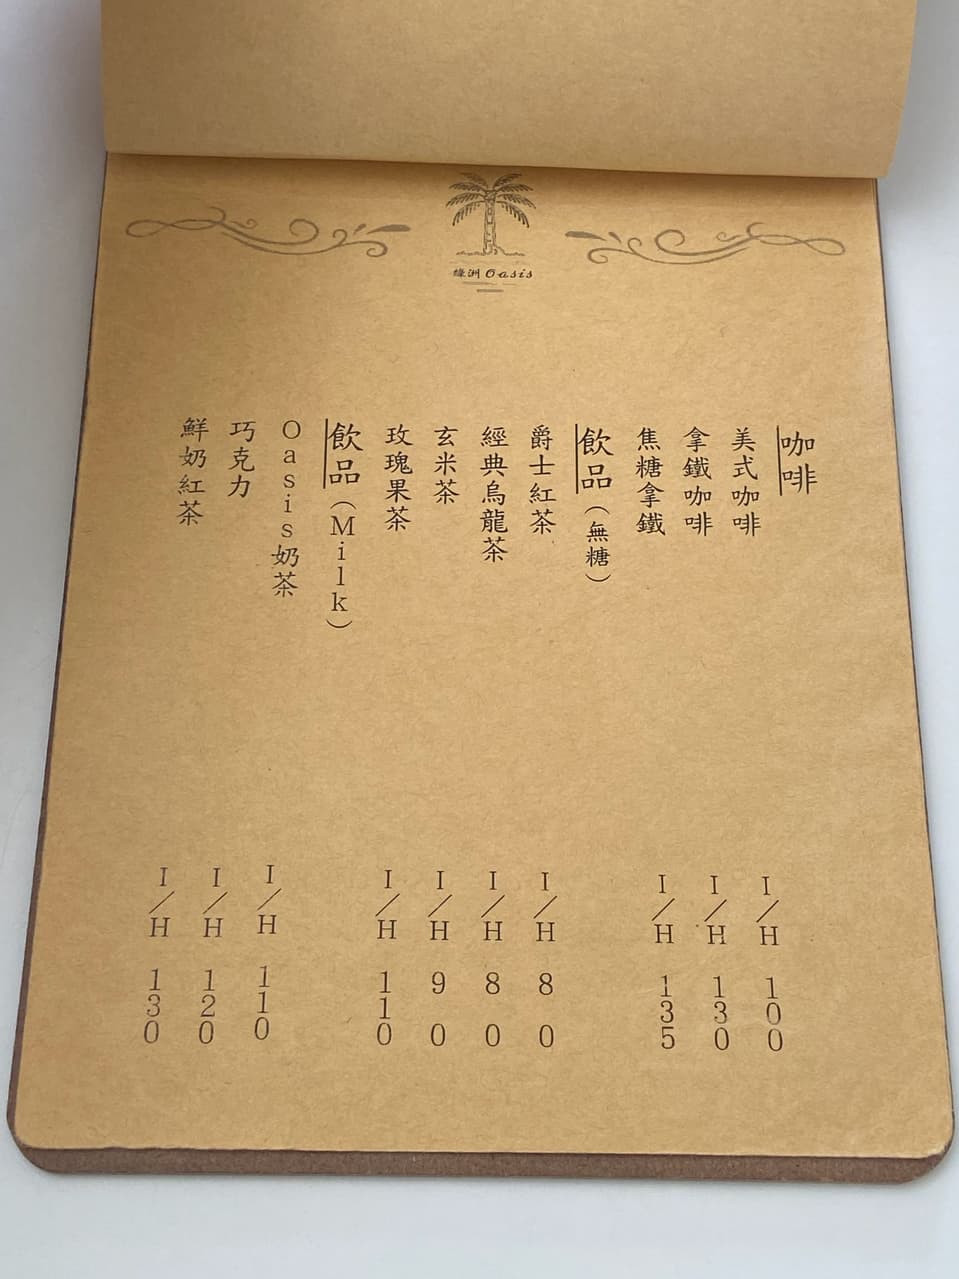 綠洲 Oasis
咖啡
美式咖啡 I/H 100
拿鐵咖啡 I/H 130
焦糖拿鐵 I/H 135
飲品（無糖）
爵士紅茶 I/H 80
經典烏龍茶 I/H 80
玄米茶 I/H 90
玫瑰果茶 I/H 110
飲品（Milk）
Oasis奶茶 I/H 110
巧克力 I/H 120
鮮奶紅茶 I/H 130